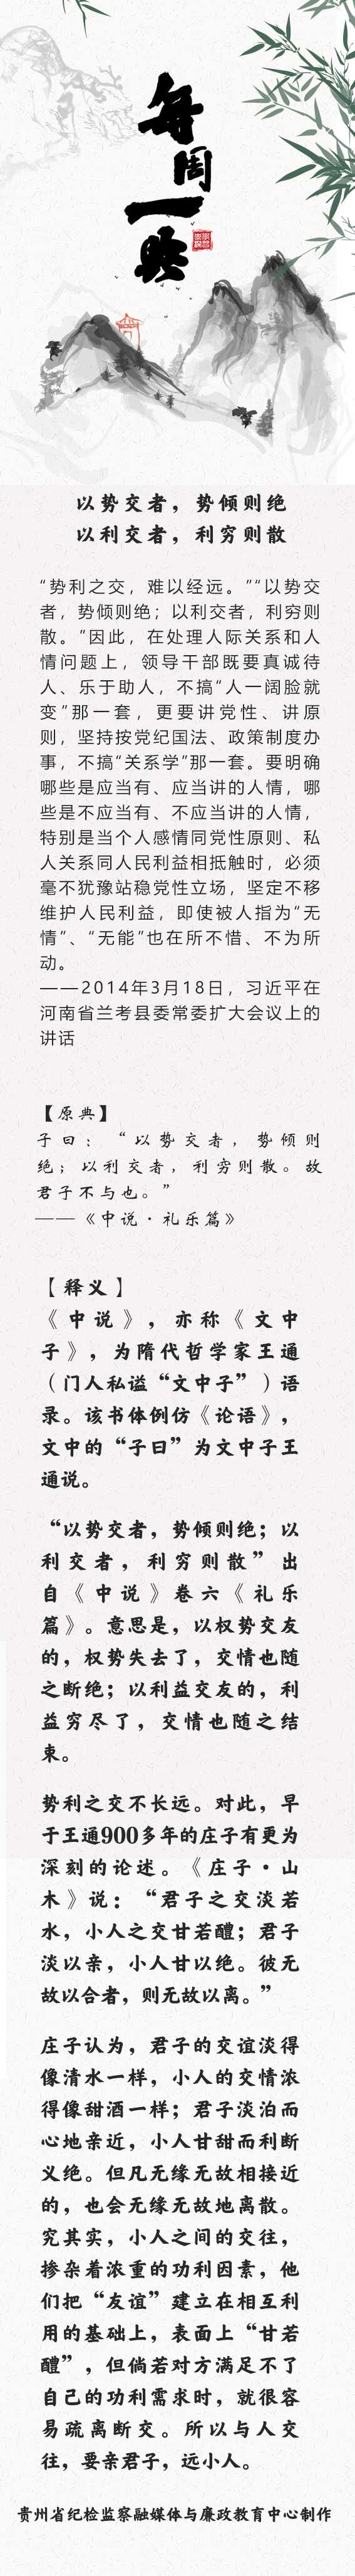 每
周
一
典
以势交者，势倾则绝
以利交者，利穷则散
“势利之交，难以经远。”“以势交
者，势倾则绝；以利交者，利穷则
散。”因此，在处理人际关系和人
情问题上，领导干部既要真诚待
人、乐于助人，不搞“人一阔脸就
变”那一套，更要讲党性、讲原
则，坚持按党纪国法、政策制度办
事，不搞“关系学”那一套。要明确
哪些是应当有、应当讲的人情，哪
些是不应当有、不应当讲的人情，
特别是当个人感情同党性原则、私
人关系同人民利益相抵触时，必须
毫不犹豫站稳党性立场，坚定不移
维护人民利益，即使被人指为“无
情”、“无能”也在所不惜、不为所
动。
——2014年3月18日，习近平在
河南省兰考县委常委扩大会议上的
讲话
【原典】
子曰：“以势交者，势倾则
绝；以利交者，利穷则散。故
君子不与也。”
——《中说·礼乐篇》
【释义】
《中说》，亦称《文中
子》，为隋代哲学家王通
（门人私谥“文中子”）语
录。该书体例仿《论语》，
文中的“子曰”为文中子王
通说。
“以势交者，势倾则绝；以
利交者，利穷则散”出
自《中说》卷六《礼乐
篇》。意思是，以权势交友
的，权势失去了，交情也随
之断绝；以利益交友的，利
益穷尽了，交情也随之结
束。
势利之交不长远。对此，早
于王通900多年的庄子有更为
深刻的论述。《庄子·山
木》说：“君子之交淡若
水，小人之交甘若醴；君子
淡以亲，小人甘以绝。彼无
故以合者，则无故以离。”
庄子认为，君子的交谊淡得
像清水一样，小人的交情浓
得像甜酒一样；君子淡泊而
心地亲近，小人甘甜而利断
义绝。但凡无缘无故相接近
的，也会无缘无故地离散。
究其实，小人之间的交往，
掺杂着浓重的功利因素，他
们把“友谊”建立在相互利
用的基础上，表面上“甘若
醴”，但倘若对方满足不了
自己的功利需求时，就很容
易疏离断交。所以与人交
往，要亲君子，远小人。
贵州省纪检监察融媒体与廉政教育中心制作